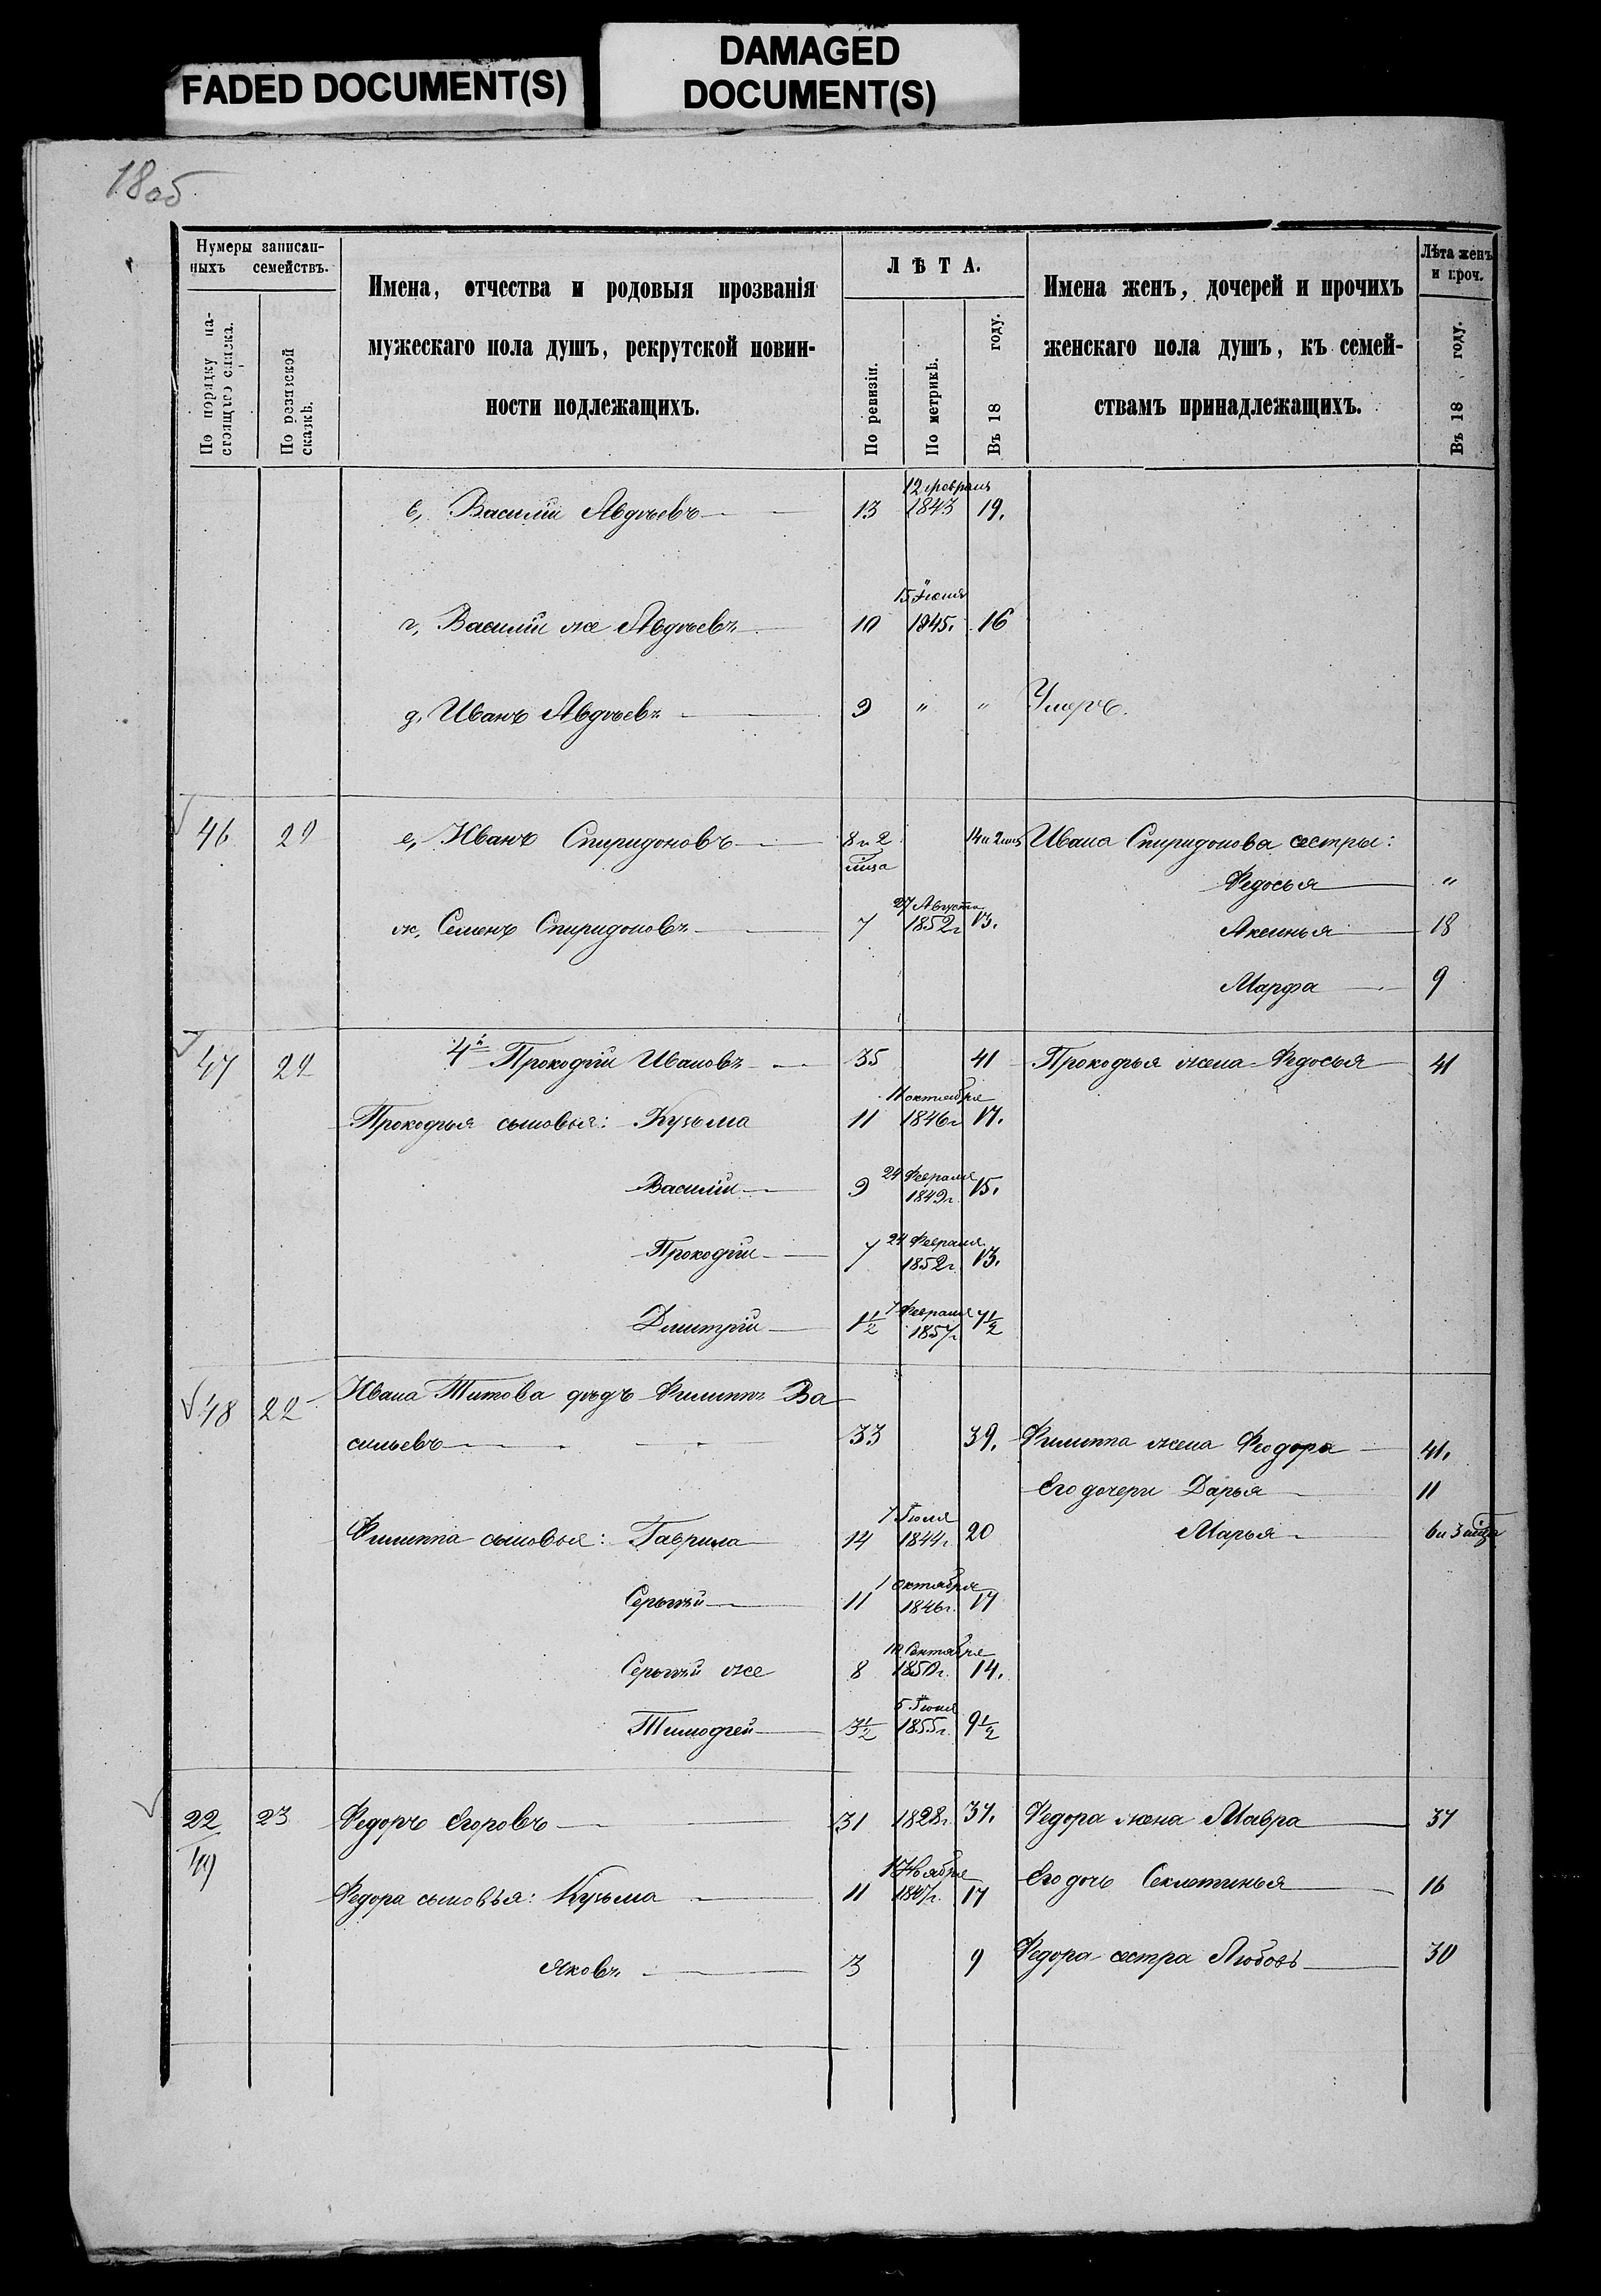 FADED DOCUMENT(S)
DAMAGED
DOCUMENT(S)
18 об
Нумеры записан-
ныхъ семействъ.
По порядку на-
стоящаго списка.
По ревизской
сказкѣ.
Имена, отчества и родовыя прозванія
мужескаго пола душъ, рекрутской повин-
ности подлежащихъ.
ЛѢТА.
По ревизіи.
По метрикѣ.
Въ 18 году.
Имена женъ, дочерей и прочихъ
женскаго пола душъ, къ семей-
ствамъ принадлежащихъ.
Лѣта женъ
и проч.
Въ 18 году.
12 февраля
в, Василій Авдѣевъ 13 1843 19.
15 Іюня
г, Василій же Авдѣевъ 10 1845. 16
д, Иванъ Авдѣевъ 9 " " Умеръ.
46 22 е, Иванъ Спиридоновъ 8 и 2 14 и 2 Ивана Спиридонова сестры:
мца
Федосья "
27 Августа
ж, Семенъ Спиридоновъ 7 1852 г 13. Аксинья 18
Марфа 9
47 22 4й Прокофій Ивановъ 35 41 Прокофья жена Федосья 41
11 октября
Прокофья сыновья: Кузьма 11 1846 г 17.
24 Февраля
Василій 9 1849 г. 15.
24 Февраля
Прокофій 7 1852 г. 13.
7 Февраля
Дмитрій 1½ 1857 г. 7½
48 22 Ивана Титова дядъ Филиппъ Ва
сильевъ 33 39. Филиппа жена Феодора 41.
Его дочери Дарья 11
7 Іюля
Филиппа сыновья: Гаврила 14 1844 г. 20 Марья 6 и 3 мца
1 октября
Сергѣй 11 1846 г. 17
10 Сентября
Сергѣй же 8 1850 г. 14.
5 Іюня
Тимофей 3½ 1855 г. 9½
22 23 Федоръ Егоровъ 31 1828 г. 37. Федора жена Мавра 37
49
Ноября
Федора сыновья: Кузьма 11 1847 г. 17 Его дочь Секлетинья 16
Яковъ 3 9 Федора сестра Любовь 30